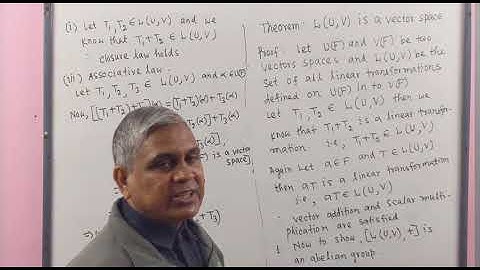 (i) Let T₁,T₂ ∈ L(U,V) and we
know that T₁+T₂ ∈ L(U,V)
∴ closure law holds
(ii) Associative law -
Let T₁,T₂,T₃ ∈ L(U,V) and α ∈ U(F)
Now, [(T₁+T₂)+T₃](α) = [T₁+T₂](α) + T₃(α)
T₂(α)] + T₃(α)
+ T₃(α)]
is a vector
space]
+ T₃)
Theorem: L(U,V) is a vector space
Proof: Let U(F) and V(F) be two
vectors spaces and L(U,V) be the
set of all linear transformations
defined on U(F) in to V(F)
Let T₁,T₂ ∈ L(U,V) then we
know that T₁+T₂ is a linear transfor-
mation. i.e, T₁+T₂ ∈ L(U,V)
Again Let a∈F and T∈L(U,V)
then aT is a linear transformation
i.e, aT∈L(U,V)
∴ vector addition and scalar multi-
plication are satisfied
Now to show, [L(U,V),+] is
an abelian group.